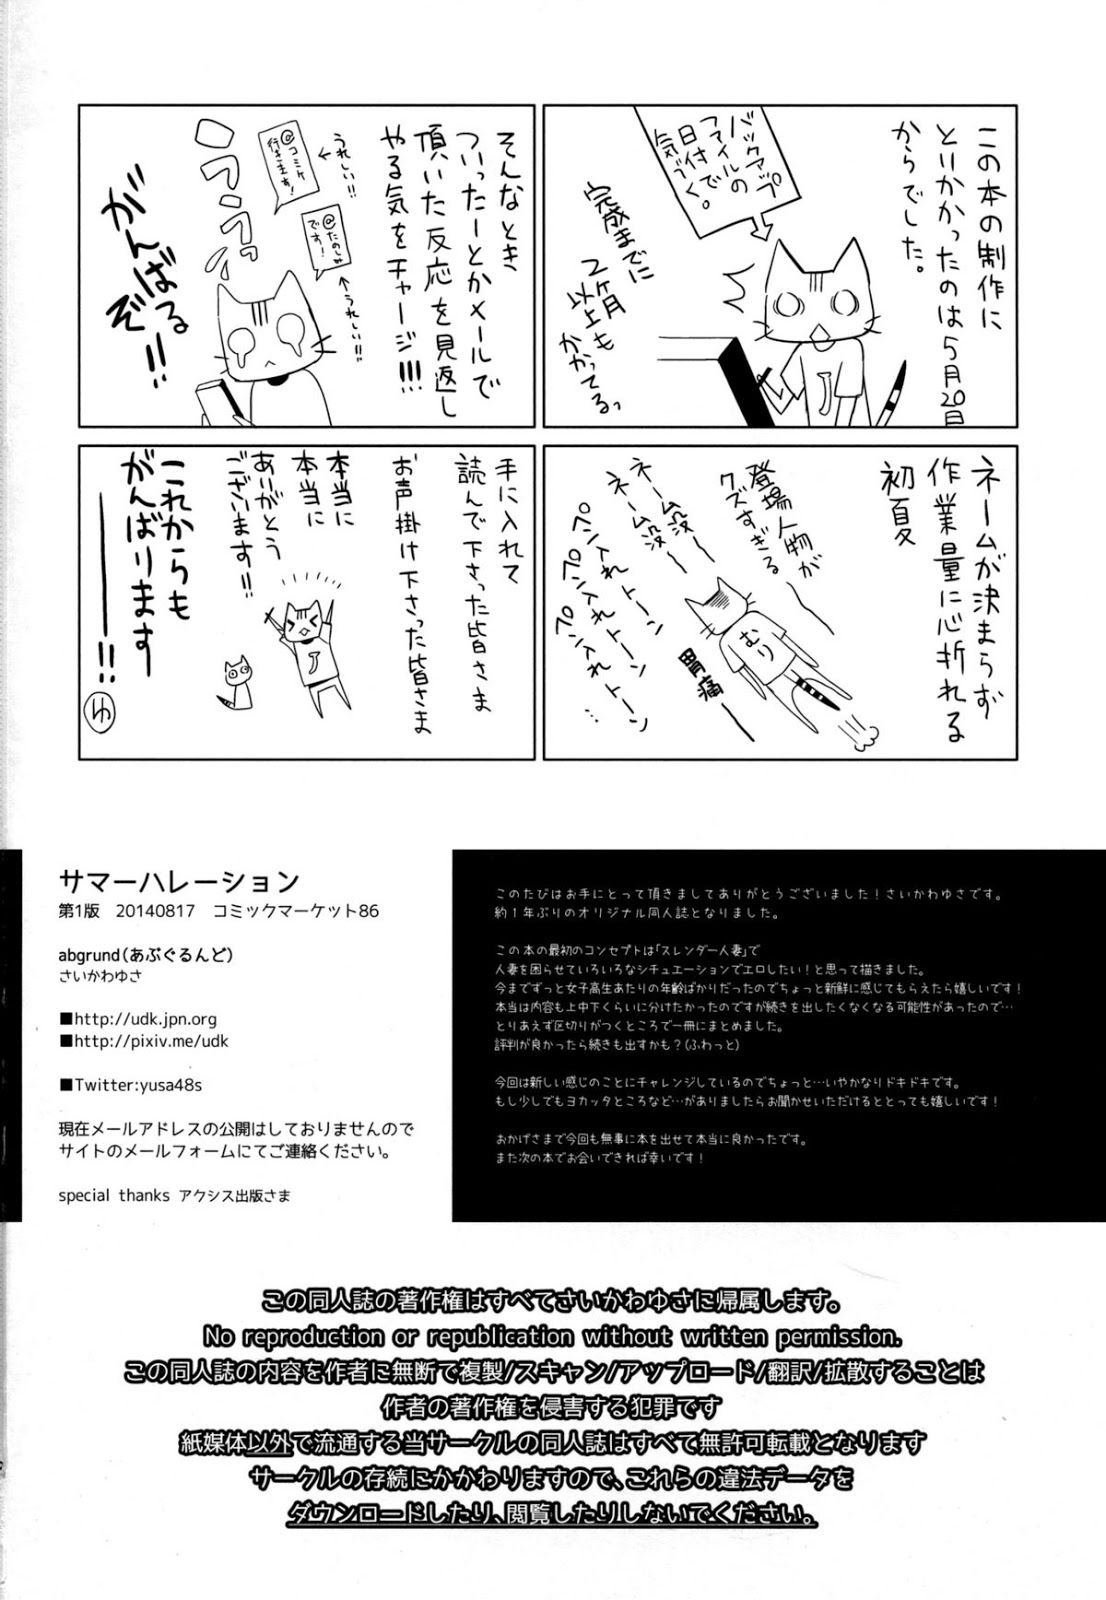 この本の制作に
といかかったのは5月20日
からでした。
バックアップ
ファイルの
日付で
気づく。
完成までに
2ヶ月
以上も
かかってるっ
そんなとき
ついったーとかメールで
頂いた反応を見返し
やる気をチャージ!!!
うれしい!!
@コミケ
行きます!
@たのしみ
です!
うれしい!!
がんばる
ぞ!!
ネームが決まらず
作業量に心折れる
初夏
登場人物が
クズすぎる
ネーム没ー
ネーム没ー
ペン入れトーン
ペン入れトーン
ペン入れトーン…
むり
胃痛ー
J
手に入れて
読んで下さった皆さま
お声掛け下さった皆さま
本当に
本当に
ありがとう
ございます!!
これからも
がんばります
ーー!!
ゆ
サマーハレーション
第1版 20140817 コミックマーケット86
abgrund(あぶぐるんど)
さいかわゆさ
■http://udk.jpn.org
■http://pixiv.me/udk
■Twitter:yusa48s
現在メールアドレスの公開はしておりませんので
サイトのメールフォームにてご連絡ください。
special thanks アクシス出版さま
このたびはお手にとって頂きましてありがとうございました!さいかわゆさです。
約1年ぶりのオリジナル同人誌となりました。
この本の最初のコンセプトは「スレンダー人妻」で
人妻を困らせていろいろなシチュエーションでエロしたい!と思って描きました。
今までずっと女子高生あたりの年齢ばかりだったのでちょっと新鮮に感じてもらえたら嬉しいです!
本当は内容も上中下くらいに分けたかったのですが続きを出したくなくなる可能性があったので…
とりあえず区切りがつくところで一冊にまとめました。
評判が良かったら続きも出すかも?(ふわっと)
今回は新しい感じのことにチャレンジしているのでちょっと…いやかなりドキドキです。
もし少しでもヨカッタところなど…がありましたらお聞かせいただけるととっても嬉しいです!
おかげさまで今回も無事に本を出せて本当に良かったです。
また次の本でお会いできれば幸いです!
この同人誌の著作権はすべてさいかわゆさに帰属します。
No reproduction or republication without written permission.
この同人誌の内容を作者に無断で複製/スキャン/アップロード/翻訳/拡散することは
作者の著作権を侵害する犯罪です
紙媒体以外で流通する当サークルの同人誌はすべて無許可転載となります
サークルの存続にかかわりますので、これらの違法データを
ダウンロードしたり、閲覧したりしないでください。